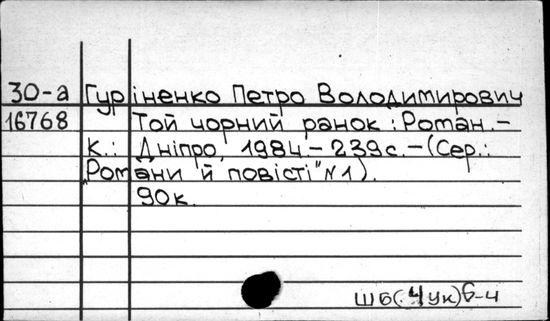 30-а Гуріненко Петро Володимирович
16768 Той чорний ранок : Роман.-
К.: Дніпро, 1984.-239с.-(Сер.:
„Романи й повісті" №1).
90к.
Ш6(4Ук)6-4